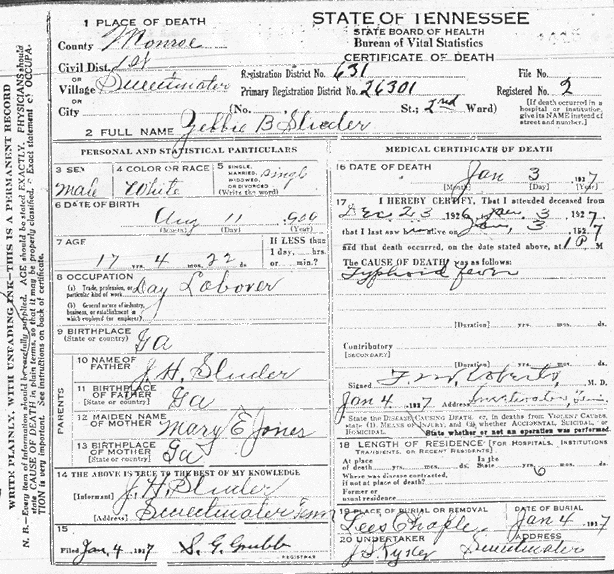 1 PLACE OF DEATH
STATE OF TENNESSEE
STATE BOARD OF HEALTH
Bureau of Vital Statistics
CERTIFICATE OF DEATH
County Monroe
Civil Dist. 1st
OR
Village Sweetwater
OR
City
Registration District No. 631
File No.
Primary Registration District No. 26301
Registered No. 2
(No. St.; 2nd Ward)
[If death occurred in a hospital or institution, give its NAME instead of street and number.]
2 FULL NAME B Sluder
PERSONAL AND STATISTICAL PARTICULARS
3 SEX male
4 COLOR OR RACE White
5 SINGLE, MARRIED, WIDOWED, OR DIVORCED (Write the word) single
6 DATE OF BIRTH
Aug 11
(Month) (Day) (Year)
7 AGE
17 yrs. 4 mos. 22 ds.
If LESS than 1 day, hrs. or min.?
8 OCCUPATION
(a) Trade, profession, or particular kind of work Day Laborer
(b) General nature of industry, business, or establishment in which employed (or employer)
9 BIRTHPLACE
(State or country) Ga
PARENTS
10 NAME OF FATHER J. H. Sluder
11 BIRTHPLACE OF FATHER
(State or country) Ga
12 MAIDEN NAME OF MOTHER Mary E Jones
13 BIRTHPLACE OF MOTHER
(State or country) Ga
14 THE ABOVE IS TRUE TO THE BEST OF MY KNOWLEDGE
[Informant] J. H. Sluder
[Address] Sweetwater Tenn
15
Filed Jan. 4 1927 S. G. Grubb
REGISTRAR
MEDICAL CERTIFICATE OF DEATH
16 DATE OF DEATH
Jan 3 1927
(Month) (Day) (Year)
17 I HEREBY CERTIFY, That I attended deceased from
Dec. 23 1926, Jan. 3 1927
that I last saw alive on Jan, 3, 1927
and that death occurred, on the date stated above, at 1 P. M
The CAUSE OF DEATH was as follows:
Typhoid fever
(Duration) yrs. mos. ds.
Contributory
(SECONDARY)
(Duration) yrs. mos. ds.
Signed F. M. Roberts, M. D.
Jan 4 1927 Address Sweetwater, Tenn.
State the DISEASE CAUSING DEATH, or, in deaths from VIOLENT CAUSES, state (1) MEANS OF INJURY; and (2) whether ACCIDENTAL, SUICIDAL, or HOMICIDAL. State whether or not an operation was performed.
18 LENGTH OF RESIDENCE (FOR HOSPITALS, INSTITUTIONS, TRANSIENTS, OR RECENT RESIDENTS)
At place of death yrs. mos. ds. In the State yrs. 6 mos. ds.
Where was disease contracted, if not at place of death?
Former or usual residence
19 PLACE OF BURIAL OR REMOVAL
Lees Chaple
DATE OF BURIAL
Jan 4 1927
20 UNDERTAKER
ADDRESS
Sweetwater
WRITE PLAINLY, WITH UNFADING INK—THIS IS A PERMANENT RECORD
N. B.—Every item of information should be carefully supplied. AGE should be stated EXACTLY. PHYSICIANS should state CAUSE OF DEATH in plain terms, so that it may be properly classified. Exact statement of OCCUPATION is very important. See instructions on back of certificate.